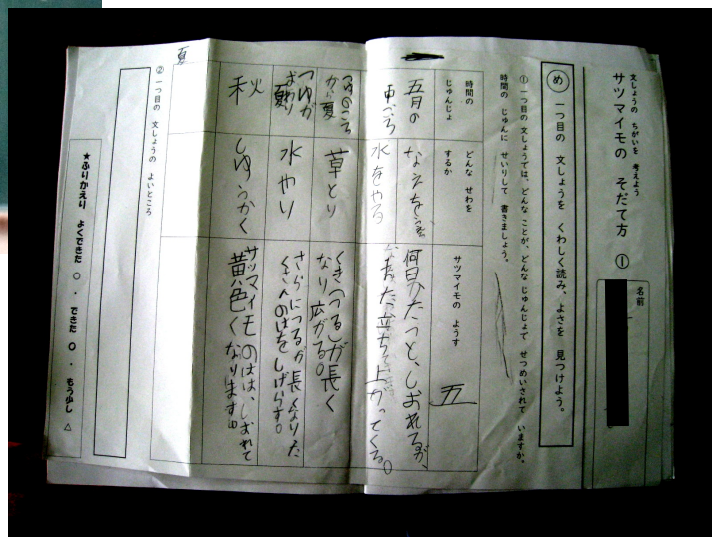 文しょうの ちがいを 考えよう
サツマイモの そだて方 ①
名前
め 一つ目の 文しょうを くわしく読み、よさを 見つけよう。
① 一つ目の 文しょうでは、どんな ことが、どんな じゅんじょで せつめいされて いますか。
時間の じゅんに せいりして 書きましょう。
時間の
じゅんじょ
どんな せわを
するか
サツマイモの ようす
五
五月の
中ごろ
なえを
水をやる
何日かたつと、しおれるが、
またた立ち上がってくる。
つゆのころ
から夏
草とり
くき(つる)が長く
なり広がる。
つゆが
おわり
夏
水やり
さらにつるが長くなりた
くさんのはをしげらす。
秋
しゅうかく
サツマイモのはは、しおれて
黄色くなります。
夏
② 一つ目の 文しょうの よいところ
★ふりかえり よくできた ◎ ・ できた ○ ・ もう少し △